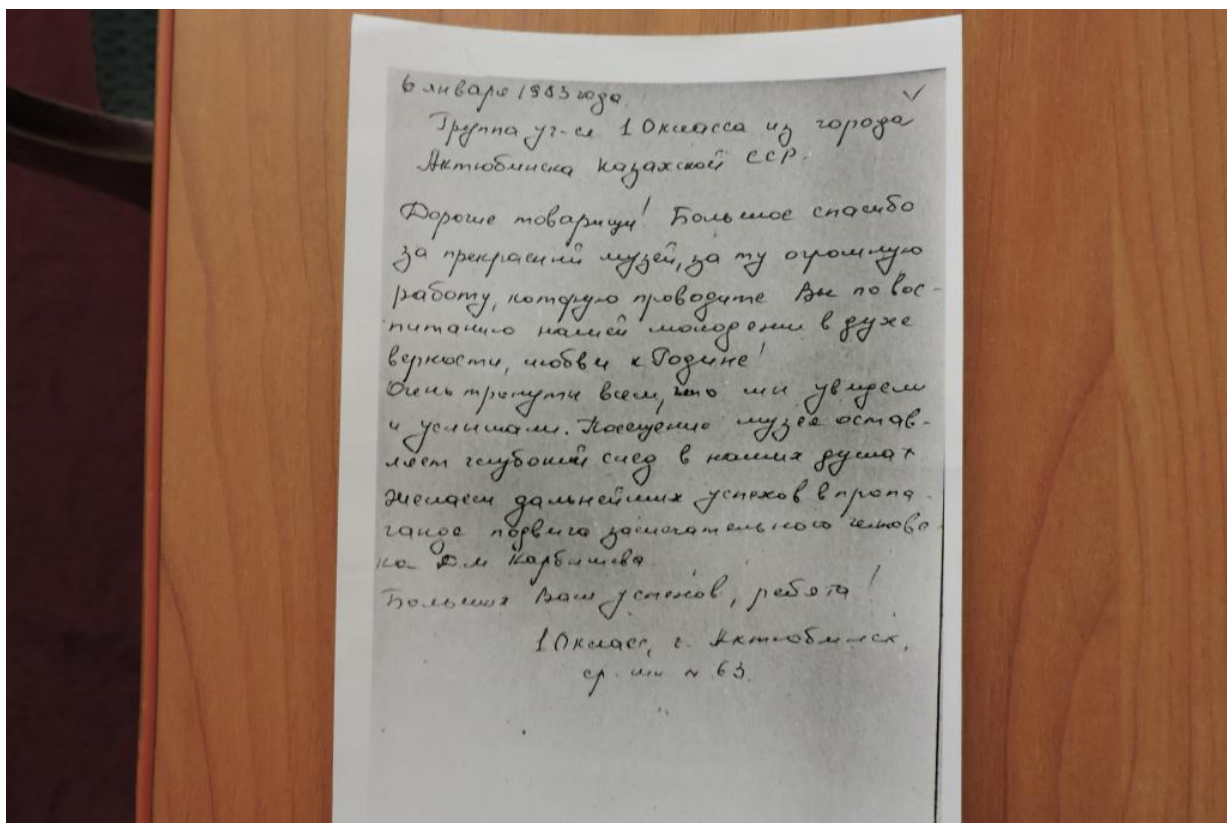 6 января 1983 года.
Группа уч-ся 10 класса из города
Актюбинска Казахской ССР.
Дорогие товарищи! Большое спасибо
за прекрасный музей, за ту огромную
работу, которую проводите Вы по вос-
питанию нашей молодежи в духе
верности, любви к Родине!
Очень тронуты всем, что мы увидели
и услышали. Посещение музея остав-
ляет глубокий след в наших душах
Желаем дальнейших успехов в пропа-
ганде подвига замечательного челове-
ка Д.М Карбышева
Больших Вам успехов, ребята!
10 класс, г. Актюбинск,
ср. шк N 63.